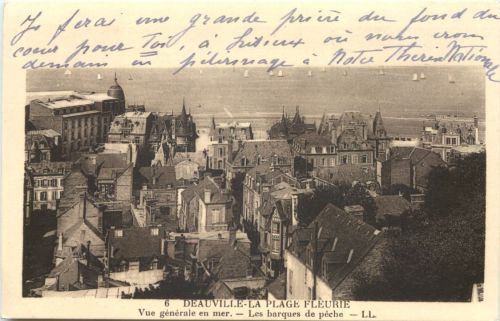 Je ferai une grande prière du fond du
cœur pour Toi à Lisieux où nous irons
demain en pélerinage à Notre Thérèse Nationale
6 DEAUVILLE-LA PLAGE FLEURIE
Vue générale en mer. — Les barques de pêche — LL.